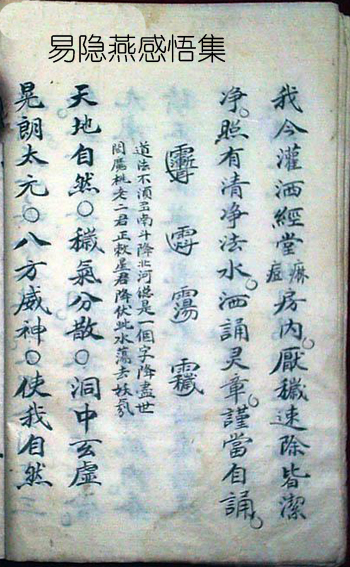 易隐燕感悟集
我今灌洒經堂痳痘房內。厭穢速除皆潔
净。照有清净法水。洒誦灵章謹當自誦。
道法不湏多南斗降北河總是一個字降盡世
二君正教星君降伏此水蕩去妖氛
天地自然○穢氣分散○洞中玄虛
晃朗太元○八方威神○使我自然